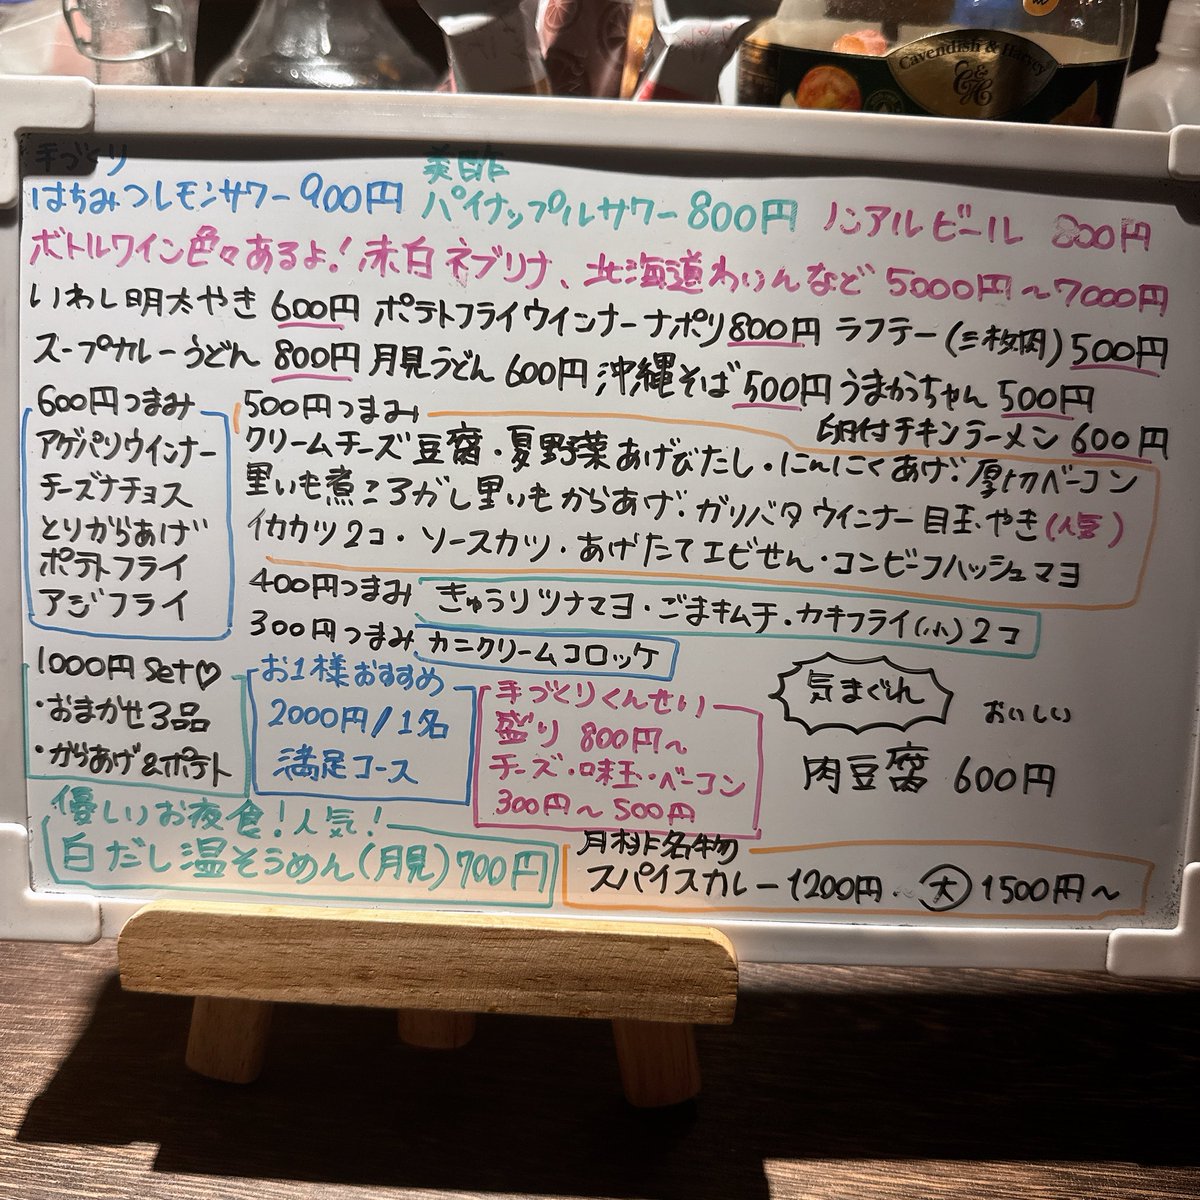 Cavendish & Harvey
C&H
手づくり
はちみつレモンサワー 900円
美酢
パイナップルサワー 800円
ノンアルビール 800円
ボトルワイン色々あるよ！赤白ネブリナ、北海道わいんなど 5000円～7000円
いわし明太やき 600円 ポテトフライウインナーナポリ 800円 ラフテー(三枚肉) 500円
スープカレーうどん 800円 月見うどん 600円 沖縄そば 500円 うまかっちゃん 500円
卵付チキンラーメン 600円
600円つまみ
アゲパリウインナー
チーズナチョス
とりからあげ
ポテトフライ
アジフライ
500円つまみ
クリームチーズ豆腐・夏野菜あげびたし・にんにくあげ・厚切ベーコン
里いも煮ころがし里いもからあげ・ガリバタウインナー目玉やき(人気)
イカカツ2コ・ソースカツ・あげたてエビせん・コンビーフハッシュマヨ
400円つまみ きゅうりツナマヨ・ごまキムチ・カキフライ(小)2コ
300円つまみ カニクリームコロッケ
1000円set♡
・おまかせ3品
・からあげ&ポテト
お1様おすすめ
2000円/1名
満足コース
手づくりくんせい
盛り 800円～
チーズ・味玉・ベーコン
300円～500円
気まぐれ
おいしい
肉豆腐 600円
優しいお夜食！人気！
白だし温そうめん(月見)700円
月桃名物
スパイスカレー1200円・大1500円～